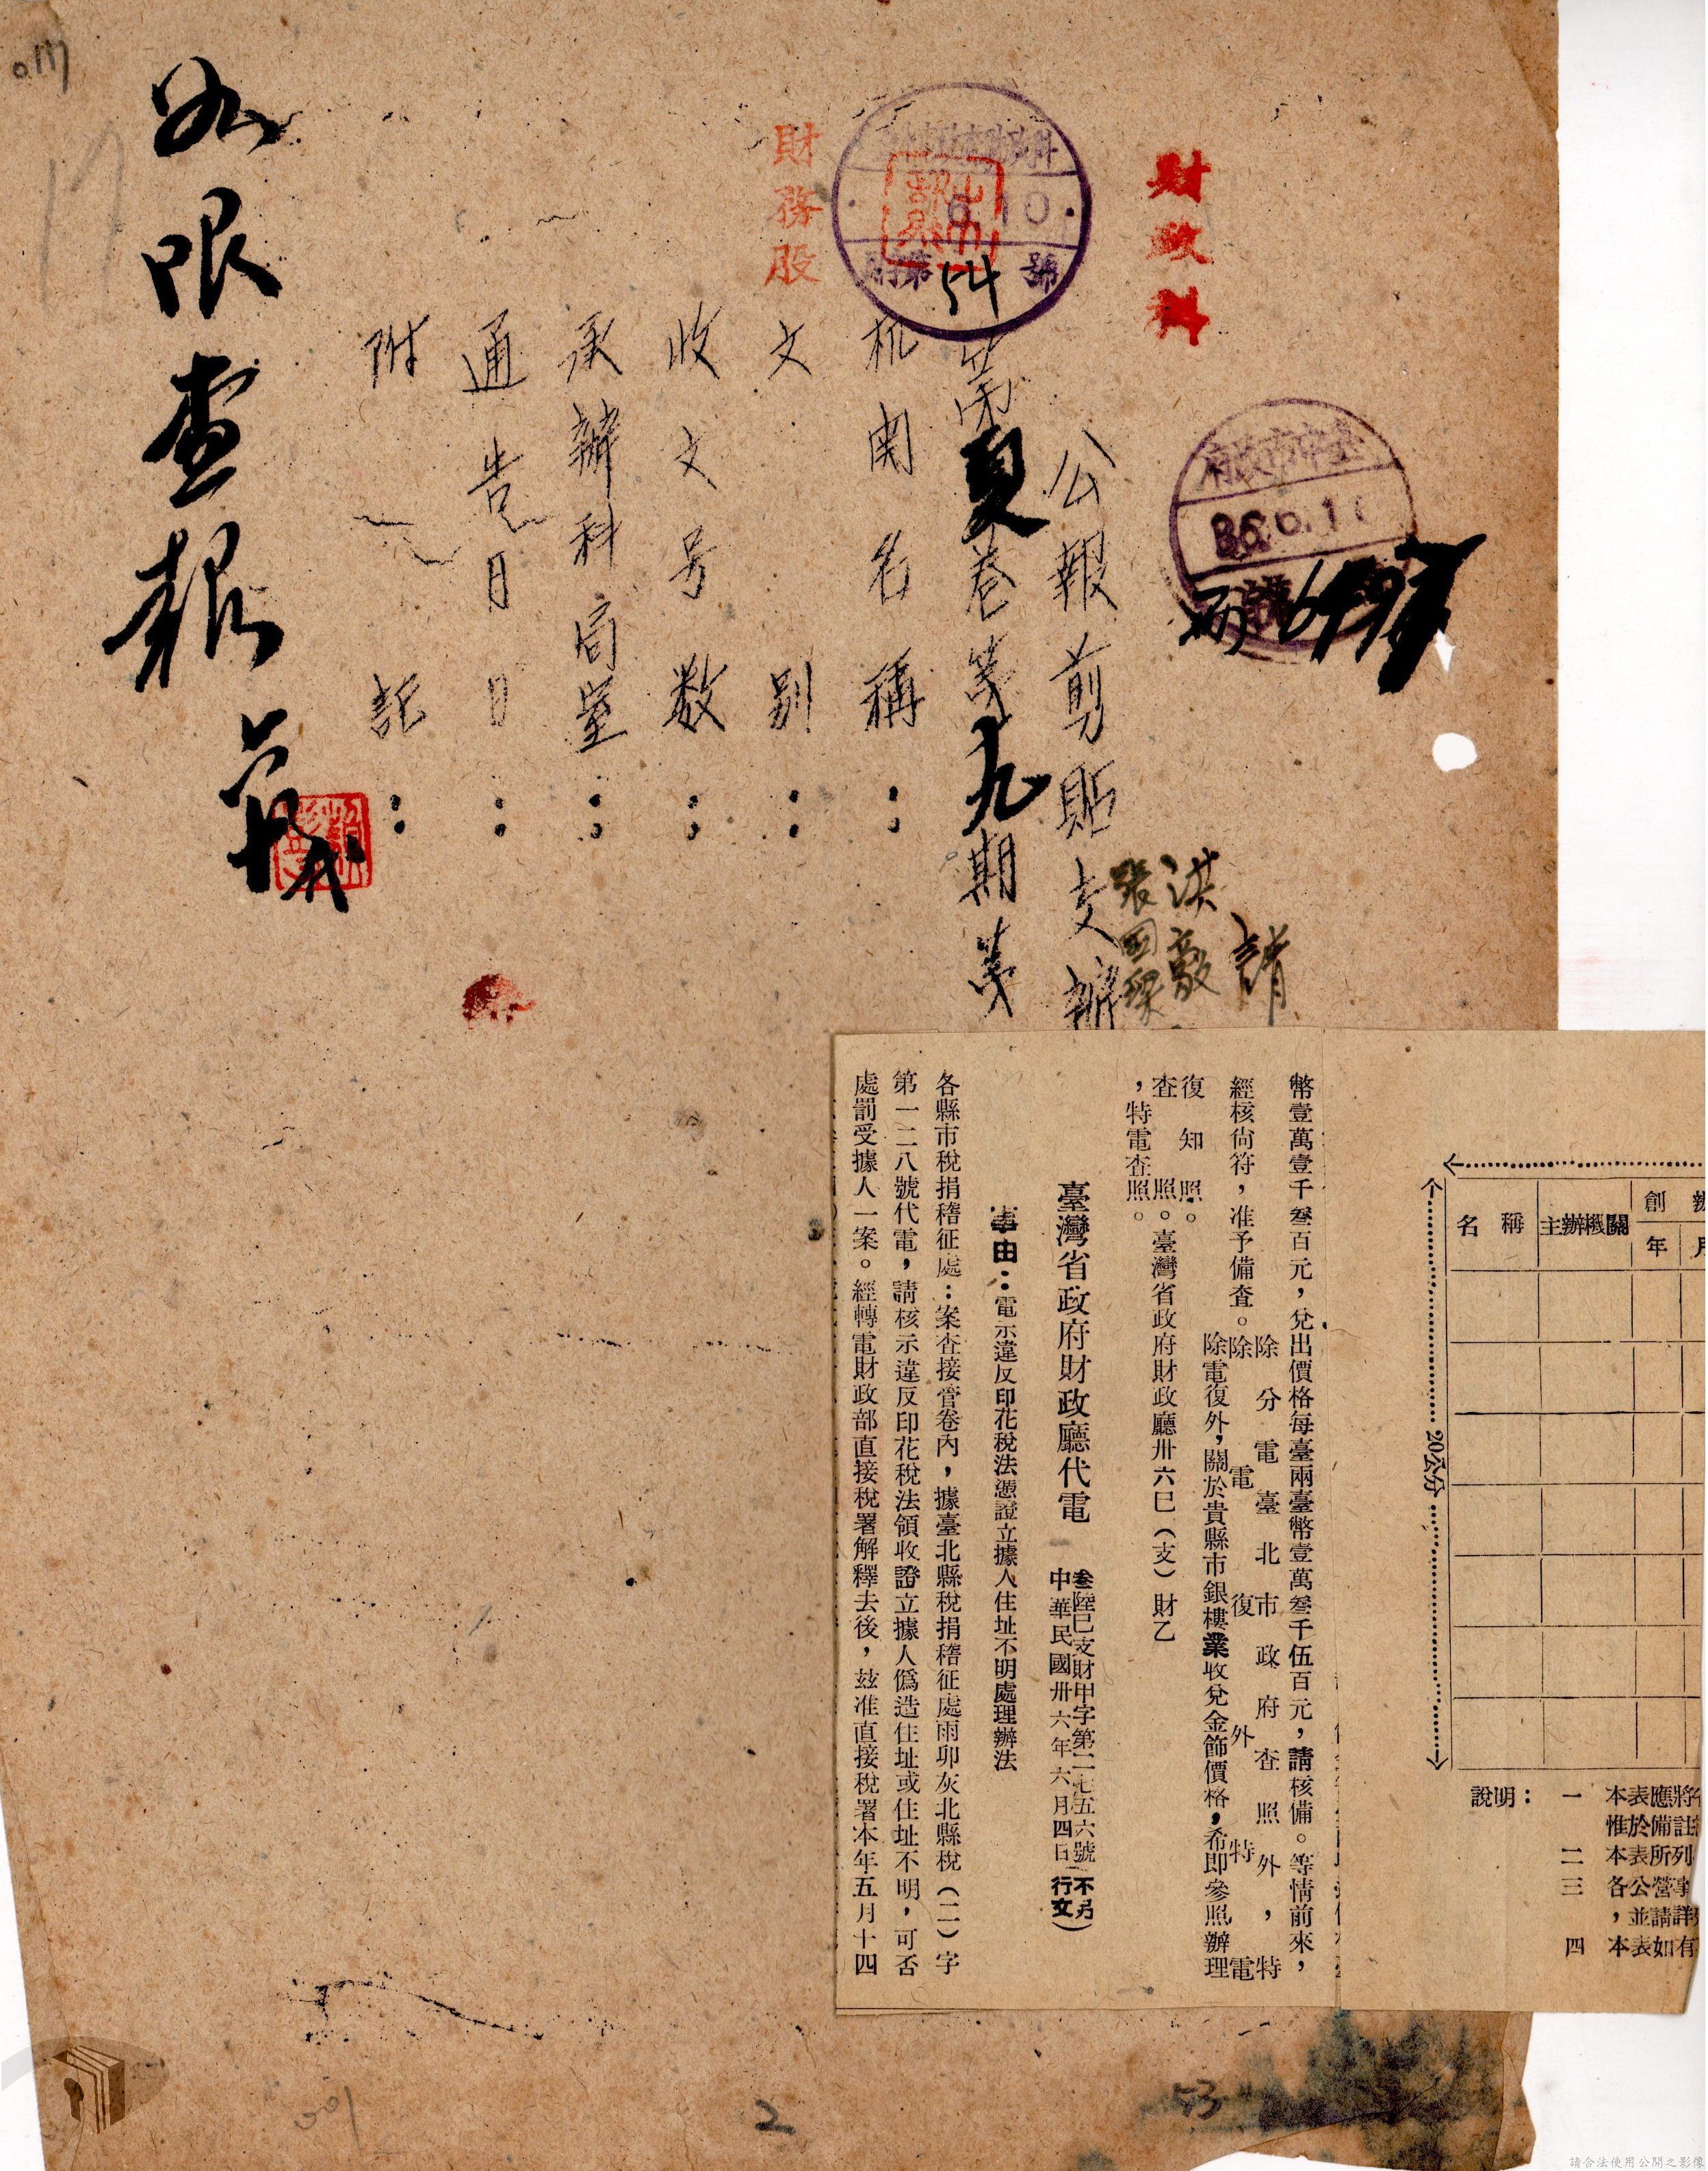 財政科
臺中市政府
36.6.11
丙
請
洪敬
張國樑
公報剪貼支辦
第夏卷第九期第
財政科
6 10
財第54號
財務股
机関名稱：
文別：
收文号数：
承辦科局室：
通告月日：
附註：
如限查報
幣壹萬壹千叁百元，兌出價格每臺兩臺幣壹萬叁千伍百元，請核備。等情前來，
經核尙符，准予備查。
除分電臺北市政府查照外，特
除電復外，特電
除電復外，關於貴縣市銀樓業收兌金飾價格，希卽參照辦理
復知照。
查照。臺灣省政府財政廳卅六巳（支）財乙
，特電查照。
臺灣省政府財政廳代電
叁陸巳支財甲字第二七五六號
中華民國卅六年六月四日
（不另行文）
事由：電示違反印花稅法憑證立據人住址不明處理辦法
各縣市稅捐稽征處：案查接管卷內，據臺北縣稅捐稽征處雨卯灰北縣稅（二）字
第一二八號代電，請核示違反印花稅法領收證立據人僞造住址或住址不明，可否
處罰受據人一案。經轉電財政部直接稅署解釋去後，玆准直接稅署本年五月十四
名稱
主辦機關
創辦
年
月
20公分
說明：
一
二
三
四
2
53
請合法使用公開之影像